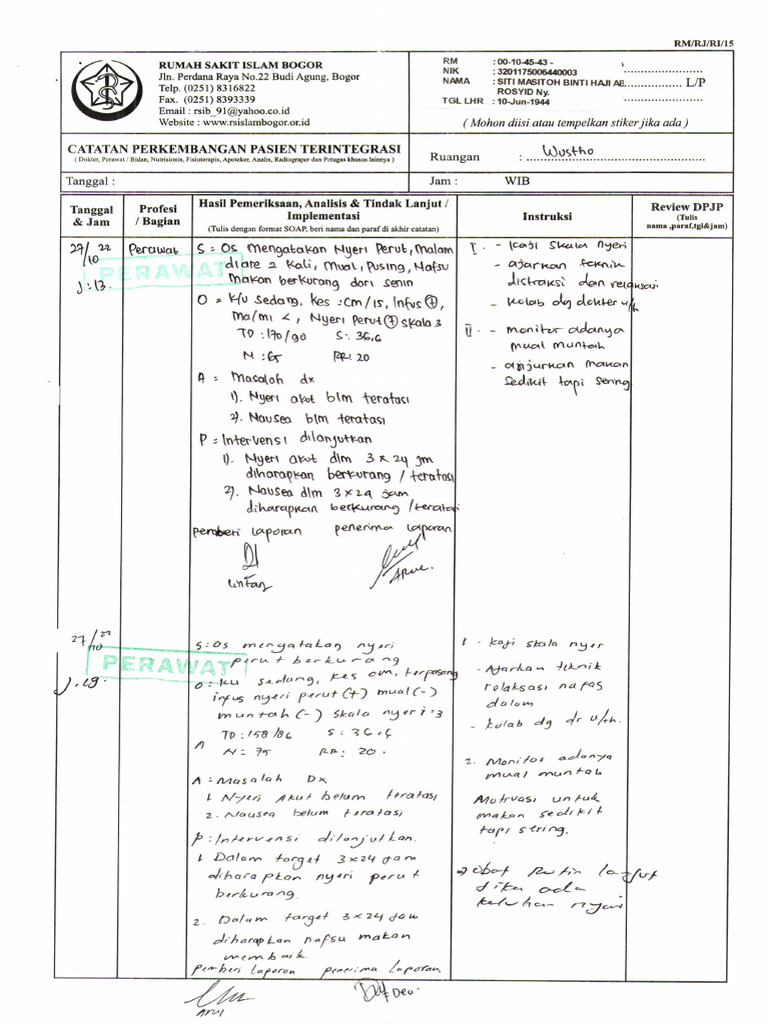 RM/RJ/RI/15
RUMAH SAKIT ISLAM BOGOR
Jln. Perdana Raya No.22 Budi Agung, Bogor
Telp. (0251) 8316822
Fax. (0251) 8393339
Email : rsib_91@yahoo.co.id
Website : www.rsislambogor.or.id
RM : 00-10-45-43 -
NIK : 3201175006440003
NAMA : SITI MASITOH BINTI HAJI AB L/P
ROSYID Ny.
TGL LHR : 10-Jun-1944
( Mohon diisi atau tempelkan stiker jika ada )
CATATAN PERKEMBANGAN PASIEN TERINTEGRASI
( Dokter, Perawat / Bidan, Nutrisionis, Fisioterapis, Apoteker, Analis, Radiograper dan Petugas khusus lainnya )
Ruangan : Wustho
Tanggal :
Jam : WIB
Tanggal & Jam
Profesi / Bagian
Hasil Pemeriksaan, Analisis & Tindak Lanjut / Implementasi
(Tulis dengan format SOAP, beri nama dan paraf di akhir catatan)
Instruksi
Review DPJP
(Tulis nama ,paraf,tgl&jam)
27/10 22
J:13
Perawat
PERAWAT
S = Os mengatakan Nyeri Perut, Malam
diare 2 kali, Mual, Pusing, Nafsu
makan berkurang dari senin
O = K/u sedang, kes : cm/15, Infus (+),
Ma/mi <, Nyeri Perut (+) skala 3
TD : 170/90 S : 36,6
N : 65 RR : 20
A = Masalah dx
1). Nyeri akut blm teratasi
2). Nausea blm teratasi
P = Intervensi dilanjutkan
1). Nyeri akut dlm 3 x 24 jm
diharapkan berkurang / teratasi
2). Nausea dlm 3 x 24 jam
diharapkan berkurang / teratasi
pemberi laporan penerima laporan
Lintang
Arul.
I. - Kaji skala nyeri
- ajarkan teknik
distraksi dan relaksasi
- kolab dg dokter u/th
II. - monitor adanya
mual muntah
- anjurkan makan
sedikit tapi sering
27/10 22
J.19
PERAWAT
S : Os mengatakan nyeri
perut berkurang
O : KU sedang, kes cm, terpasang
infus nyeri perut (+) mual (-)
muntah (-) skala nyeri = 3
TD : 158/86 S : 36.6
N = 75 RR : 20.
A
A : Masalah Dx
1. Nyeri Akut belum teratasi
2. Nausea belum teratasi
P : Intervensi dilanjutkan.
1. Dalam target 3x24 jam
diharapkan nyeri perut
berkurang.
2. Dalam target 3x24 jam
diharapkan nafsu makan
membaik
pemberi laporan penerima laporan
Arul
Dev.
1. - Kaji skala nyer
- Ajarkan teknik
relaksasi nafas
dalam
- kolab dg dr u/th.
2. Monitor adanya
mual muntah
Motivasi untuk
makan sedikit
tapi sering.
→ Obat Rutin lanjut
Jika ada
keluhan nyeri